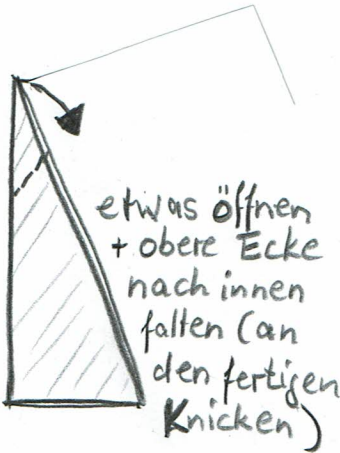 etwas öffnen
+ obere Ecke
nach innen
falten (an
den fertigen
Knicken)